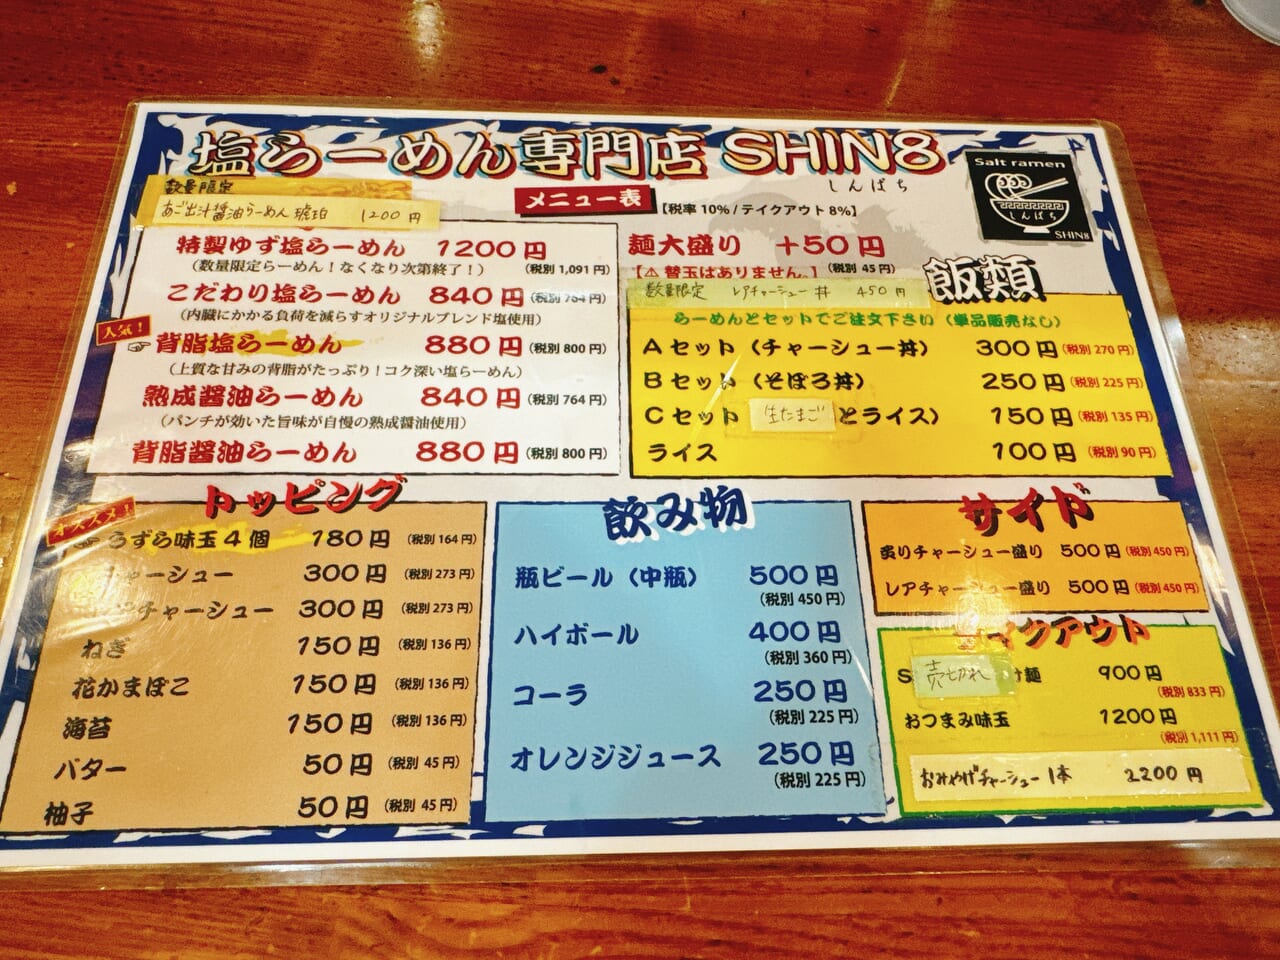 塩らーめん専門店 SHIN8
しんぱち
Salt ramen
しんぱち
SHIN8
メニュー表
【税率 10% / テイクアウト 8%】
数量限定
あご出汁醤油らーめん 琥珀 1200円
特製ゆず塩らーめん 1200円
（数量限定らーめん！なくなり次第終了！） （税別 1,091 円）
こだわり塩らーめん 840円 （税別 764 円）
（内臓にかかる負荷を減らすオリジナルブレンド塩使用）
人気！
背脂塩らーめん 880円 （税別 800 円）
（上質な甘みの背脂がたっぷり！コク深い塩らーめん）
熟成醤油らーめん 840円 （税別 764 円）
（パンチが効いた旨味が自慢の熟成醤油使用）
背脂醤油らーめん 880円 （税別 800 円）
麺大盛り +50円
【⚠ 替玉はありません。】 （税別 45 円）
数量限定 レアチャーシュー丼 450円
飯類
らーめんとセットでご注文下さい（単品販売なし）
Aセット（チャーシュー丼） 300円 （税別 270 円）
Bセット（そぼろ丼） 250円 （税別 225 円）
Cセット 生たまご とライス） 150円 （税別 135 円）
ライス 100円 （税別 90 円）
トッピング
オススメ！
うずら味玉4個 180円 （税別 164 円）
チャーシュー 300円 （税別 273 円）
チャーシュー 300円 （税別 273 円）
ねぎ 150円 （税別 136 円）
花かまぼこ 150円 （税別 136 円）
海苔 150円 （税別 136 円）
バター 50円 （税別 45 円）
柚子 50円 （税別 45 円）
飲み物
瓶ビール（中瓶） 500円
（税別 450 円）
ハイボール 400円
（税別 360 円）
コーラ 250円
（税別 225 円）
オレンジジュース 250円
（税別 225 円）
サイド
炙りチャーシュー盛り 500円 （税別 450 円）
レアチャーシュー盛り 500円 （税別 450 円）
テイクアウト
S 売切れ け麺 900円
（税別 833 円）
おつまみ味玉 1200円
（税別 1,111 円）
おみやげチャーシュー 1本 2200円